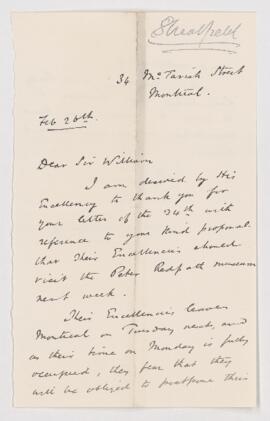 Streatfeild
34 McTavish Street
Montreal.
Feb 26th.
Dear Sir William
I am desired by His
Excellency to thank you for
your letter of the 24th with
reference to your kind proposal
that Their Excellencies should
visit the Peter Redpath museum
next week.
Their Excellencies leave
Montreal on Tuesday next, and
as their time on Monday is fully
occupied, they fear that they
will be obliged to postpone their